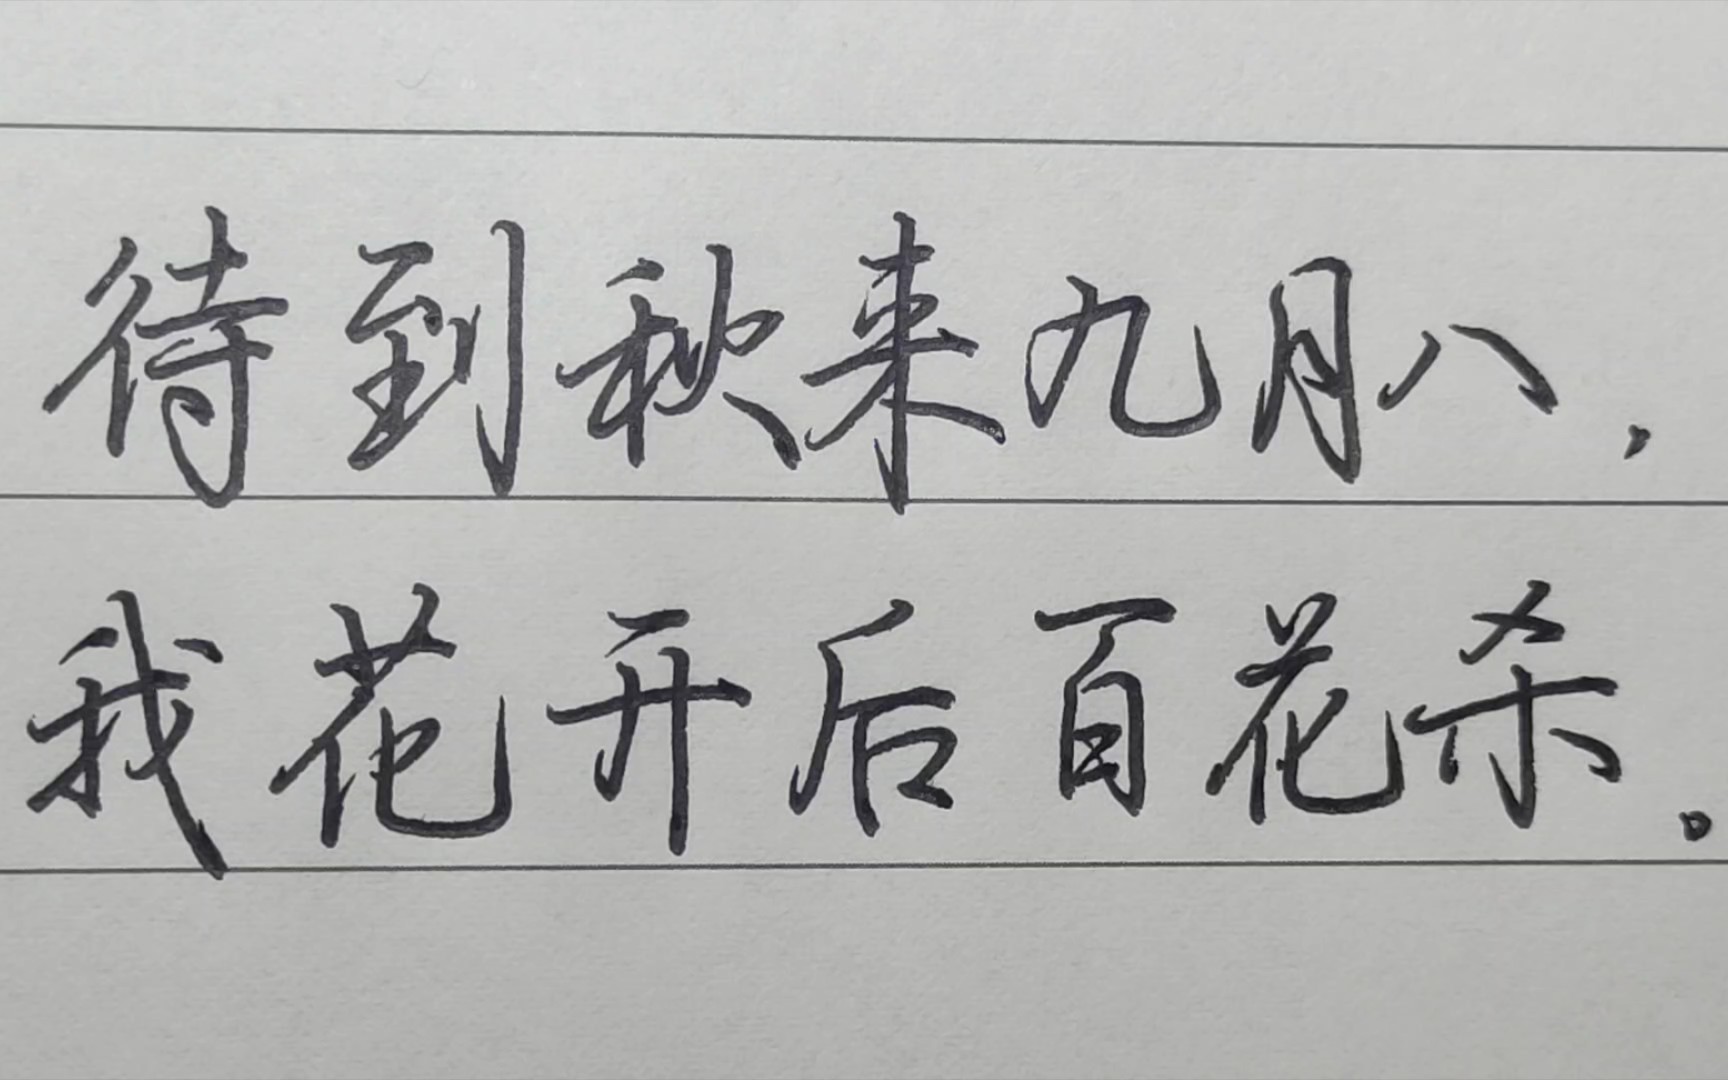 待到秋来九月八，
我花开后百花杀。